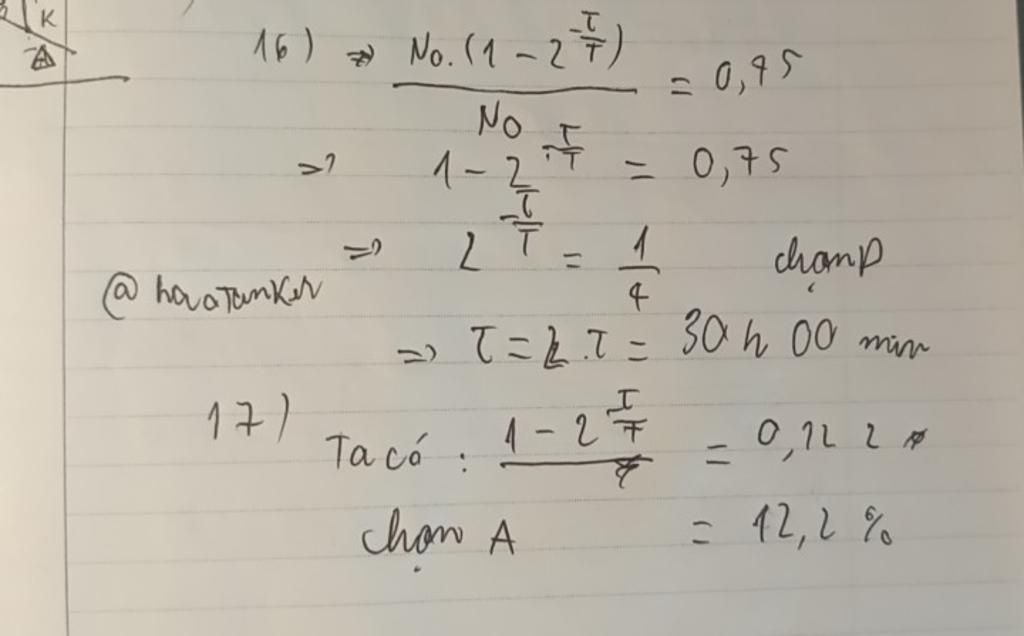 K
A
16) => No.(1 - 2^{-\frac{τ}{T}}) / No = 0,75
=> 1 - 2^{-\frac{τ}{T}} = 0,75
=> 2^{-\frac{τ}{T}} = \frac{1}{4} chọn D
@hoaTanker
=> τ = 2.T = 30 h 00 min
17)
Ta có : 1 - 2^{\frac{τ}{T}} = 0,122
chọn A = 12,2 %